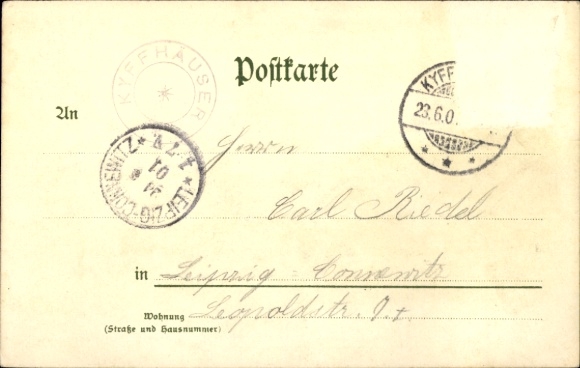 KYFFHÄUSER
Postkarte
KYFF
23.6.0
An
LEIPZIG-CONNEWITZ
Herrn
Carl Riedel
in Leipzig-Connewitz
Wohnung Leopoldstr.
(Straße und Hausnummer)